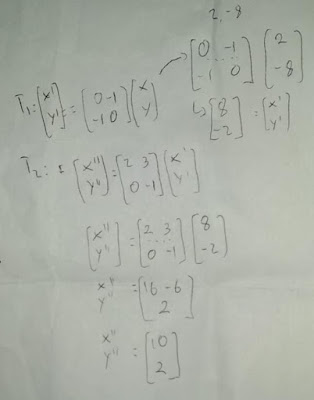 2, -8
T₁: [x' y'] = [0 -1 -1 0] [x y] → [0 -1 -1 0] [2 -8]
↳ [8 -2] = [x' y']
T₂ : = [x'' y''] = [2 3 0 -1] [x' y']
[x'' y''] = [2 3 0 -1] [8 -2]
x'' y'' = [16 -6 2]
x'' y'' = [10 2]